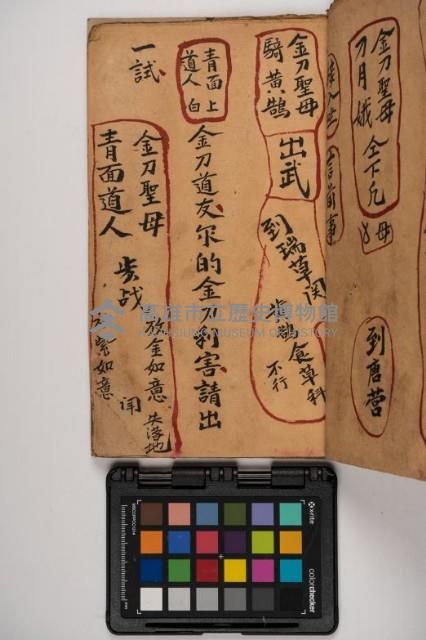 金刀聖母
刀月娥 仝下凢
母
到唐营
言前事
金刀聖母
騎黃鵲
出武
到瑞草
食草料
不行
青面上
道人白
金刀道友尔的金
利害請出
一試
金刀聖母
青面道人
步战
放金如意
失落地
紫如意
高雄市立歷史博物館
KAOHSIUNG MUSEUM OF HISTORY
x-rite
colorchecker